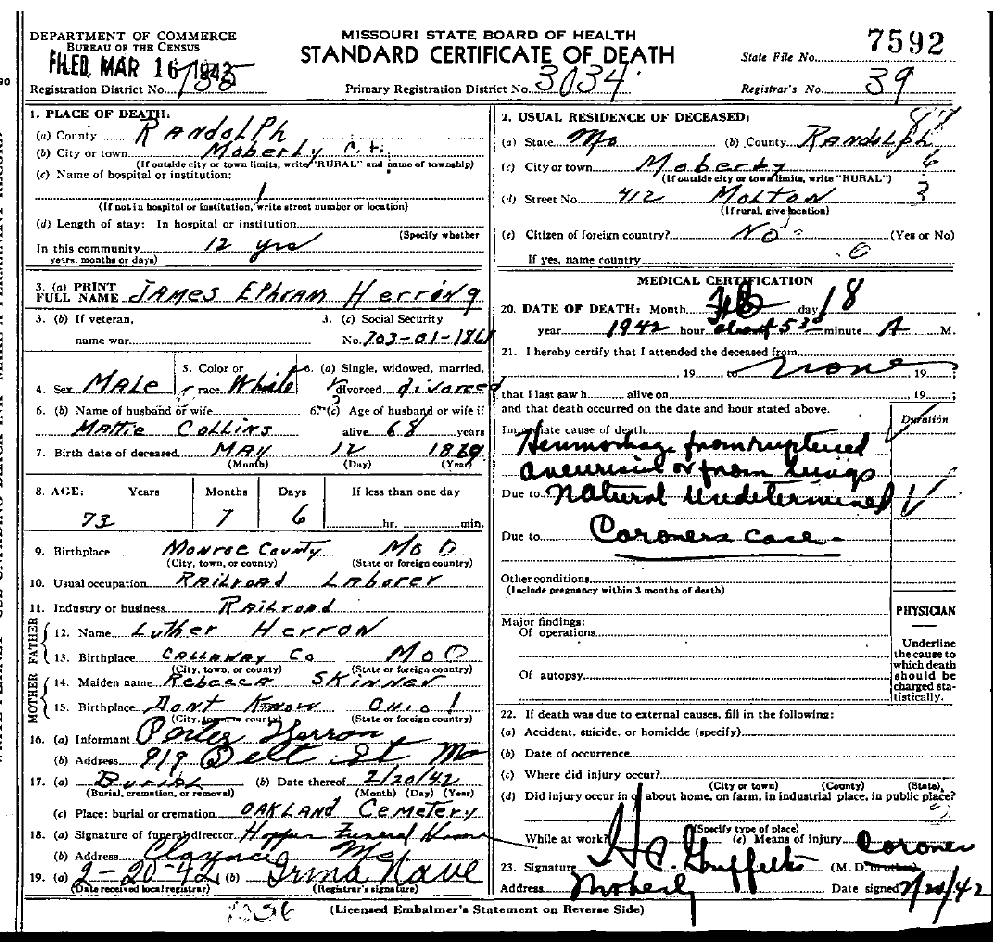 DEPARTMENT OF COMMERCE
BUREAU OF THE CENSUS
FILED MAR 16 1942
MISSOURI STATE BOARD OF HEALTH
STANDARD CERTIFICATE OF DEATH
State File No. 7592
Registration District No. 735
Primary Registration District No. 3034
Registrar's No. 39
1. PLACE OF DEATH:
(a) County RANDOLPH
(b) City or town Moberly
(If outside city or town limits, write "RURAL" and name of township)
(c) Name of hospital or institution:
(If not in hospital or institution, write street number or location)
(d) Length of stay: In hospital or institution
(Specify whether
In this community 12 yrs
years, months or days)
3. (a) PRINT
FULL NAME JAMES EPHRAM Herring
3. (b) If veteran,
name war
3. (c) Social Security
No. 703-01-186
4. Sex MALE
5. Color or
race White
6. (a) Single, widowed, married,
divorced divorced
6. (b) Name of husband or wife
Mattie Collins
6. (c) Age of husband or wife if
alive 68 years
7. Birth date of deceased MAY 12 1869
(Month) (Day) (Year)
8. AGE: Years Months Days If less than one day
73 7 6 hr. min.
9. Birthplace Monroe County Mo
(City, town, or county) (State or foreign country)
10. Usual occupation RAILROAD LABORER
11. Industry or business RAILROAD
FATHER
12. Name Luther Herron
13. Birthplace CALLAWAY Co Mo
(City, town, or county) (State or foreign country)
MOTHER
14. Maiden name Rebecca SKINNER
15. Birthplace Dont Know OHIO
(City, town, or county) (State or foreign country)
16. (a) Informant Porter Herron
(b) Address 919 St Mo
17. (a) Burial (b) Date thereof 2/20/42
(Burial, cremation, or removal) (Month) (Day) (Year)
(c) Place: burial or cremation OAKLAND Cemetery
18. (a) Signature of funeral director Hopper Funeral Home
(b) Address Clarence Mo
19. (a) 2-20-42 (b) Irma Nave
(Date received local registrar) (Registrar's signature)
2. USUAL RESIDENCE OF DECEASED:
(a) State Mo (b) County RANDOLPH
(c) City or town Moberly
(If outside city or town limits, write "RURAL")
(d) Street No. 412 MOLTON
(If rural, give location)
(e) Citizen of foreign country? No (Yes or No)
If yes, name country
MEDICAL CERTIFICATION
20. DATE OF DEATH: Month Feb day 18
year 1942 hour about 530 minute A M.
21. I hereby certify that I attended the deceased from
19 to none 19
that I last saw h alive on 19
and that death occurred on the date and hour stated above.
Duration
Immediate cause of death
Hemorrhage from ruptured
aneurism or from lungs
Due to Natural Undetermined
Due to Coroners case
Other conditions
(Include pregnancy within 3 months of death)
Major findings:
Of operations
Of autopsy
PHYSICIAN
Underline
the cause to
which death
should be
charged sta-
tistically.
22. If death was due to external causes, fill in the following:
(a) Accident, suicide, or homicide (specify)
(b) Date of occurrence
(c) Where did injury occur?
(City or town) (County) (State)
(d) Did injury occur in or about home, on farm, in industrial place, in public place?
(Specify type of place)
While at work? (e) Means of injury
Coroner
23. Signature (M. D. or other)
Address Moberly Date signed 2/20/42
(Licensed Embalmer's Statement on Reverse Side)